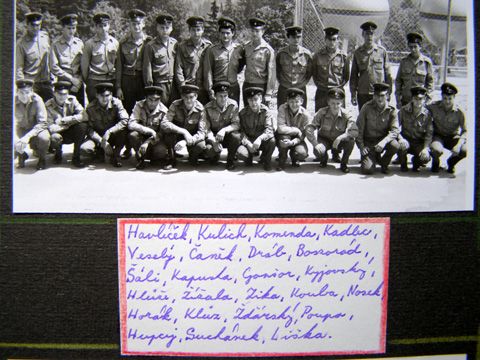 Havlíček, Kulich, Komenda, Kadlec,
Veselý, Čaněk, Dráb, Bosorád,
Šálí, Kapusta, Gonsior, Kyjovský,
Žížala, Zika, Kouba, Nosek,
Horák, Klíz, Žďárský, Poupa,
Suchánek, Liška.